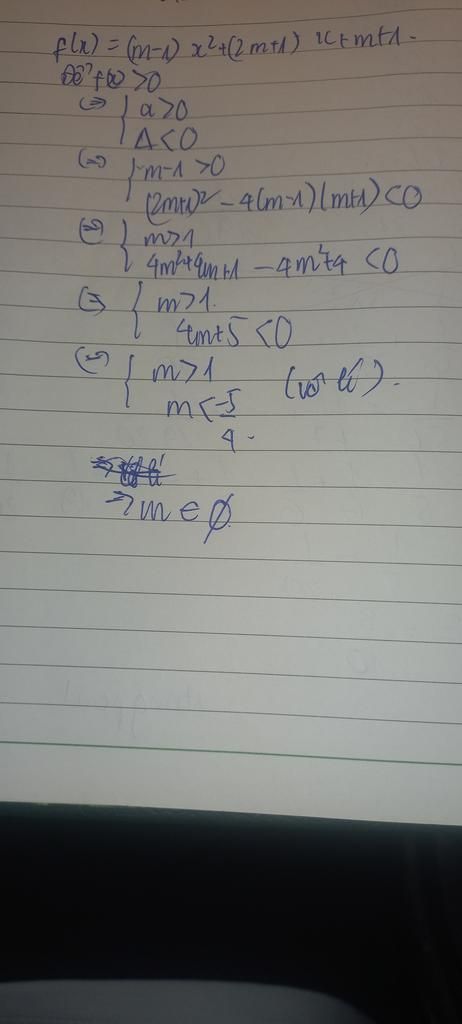 f(x) = (m-1) x² + (2m+1) x + m+1.
Để f(x) >0
(=) { a>0
Δ<0
(=) { m-1 >0
(2m+1)² - 4(m-1)(m+1) <0
(=) { m>1
4m²+4m+1 - 4m²+4 <0
(=) { m>1.
4m+5 <0
(=) { m>1 (vô lí).
m< -5/4.
⇒ m ∈ ∅